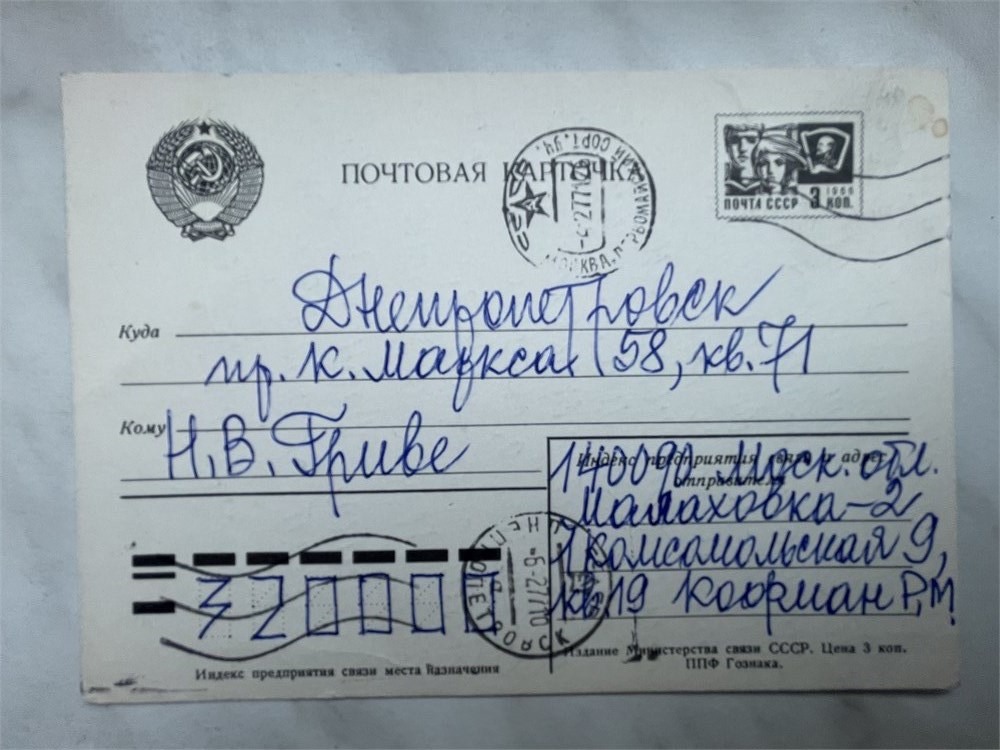 ПОЧТОВАЯ КАРТОЧКА
МОСКВА, ПЕРВОМАЙСКИЙ СОРТ. УЧ.
-4-277
1966
ПОЧТА СССР 3 КОП.
Куда Днепропетровск
пр. К. Маркса 58, кв. 71
Кому Н. В. Гриве
Индекс предприятия связи и адрес
отправителя
140090 Моск. обл.
Малаховка-2
Комсомольская 9,
кв 19 Кофман Р, М
320000
ДНЕПРОПЕТРОВСК
-5-27710
Индекс предприятия связи места назначения
Издание Министерства связи СССР. Цена 3 коп.
ППФ Гознака.